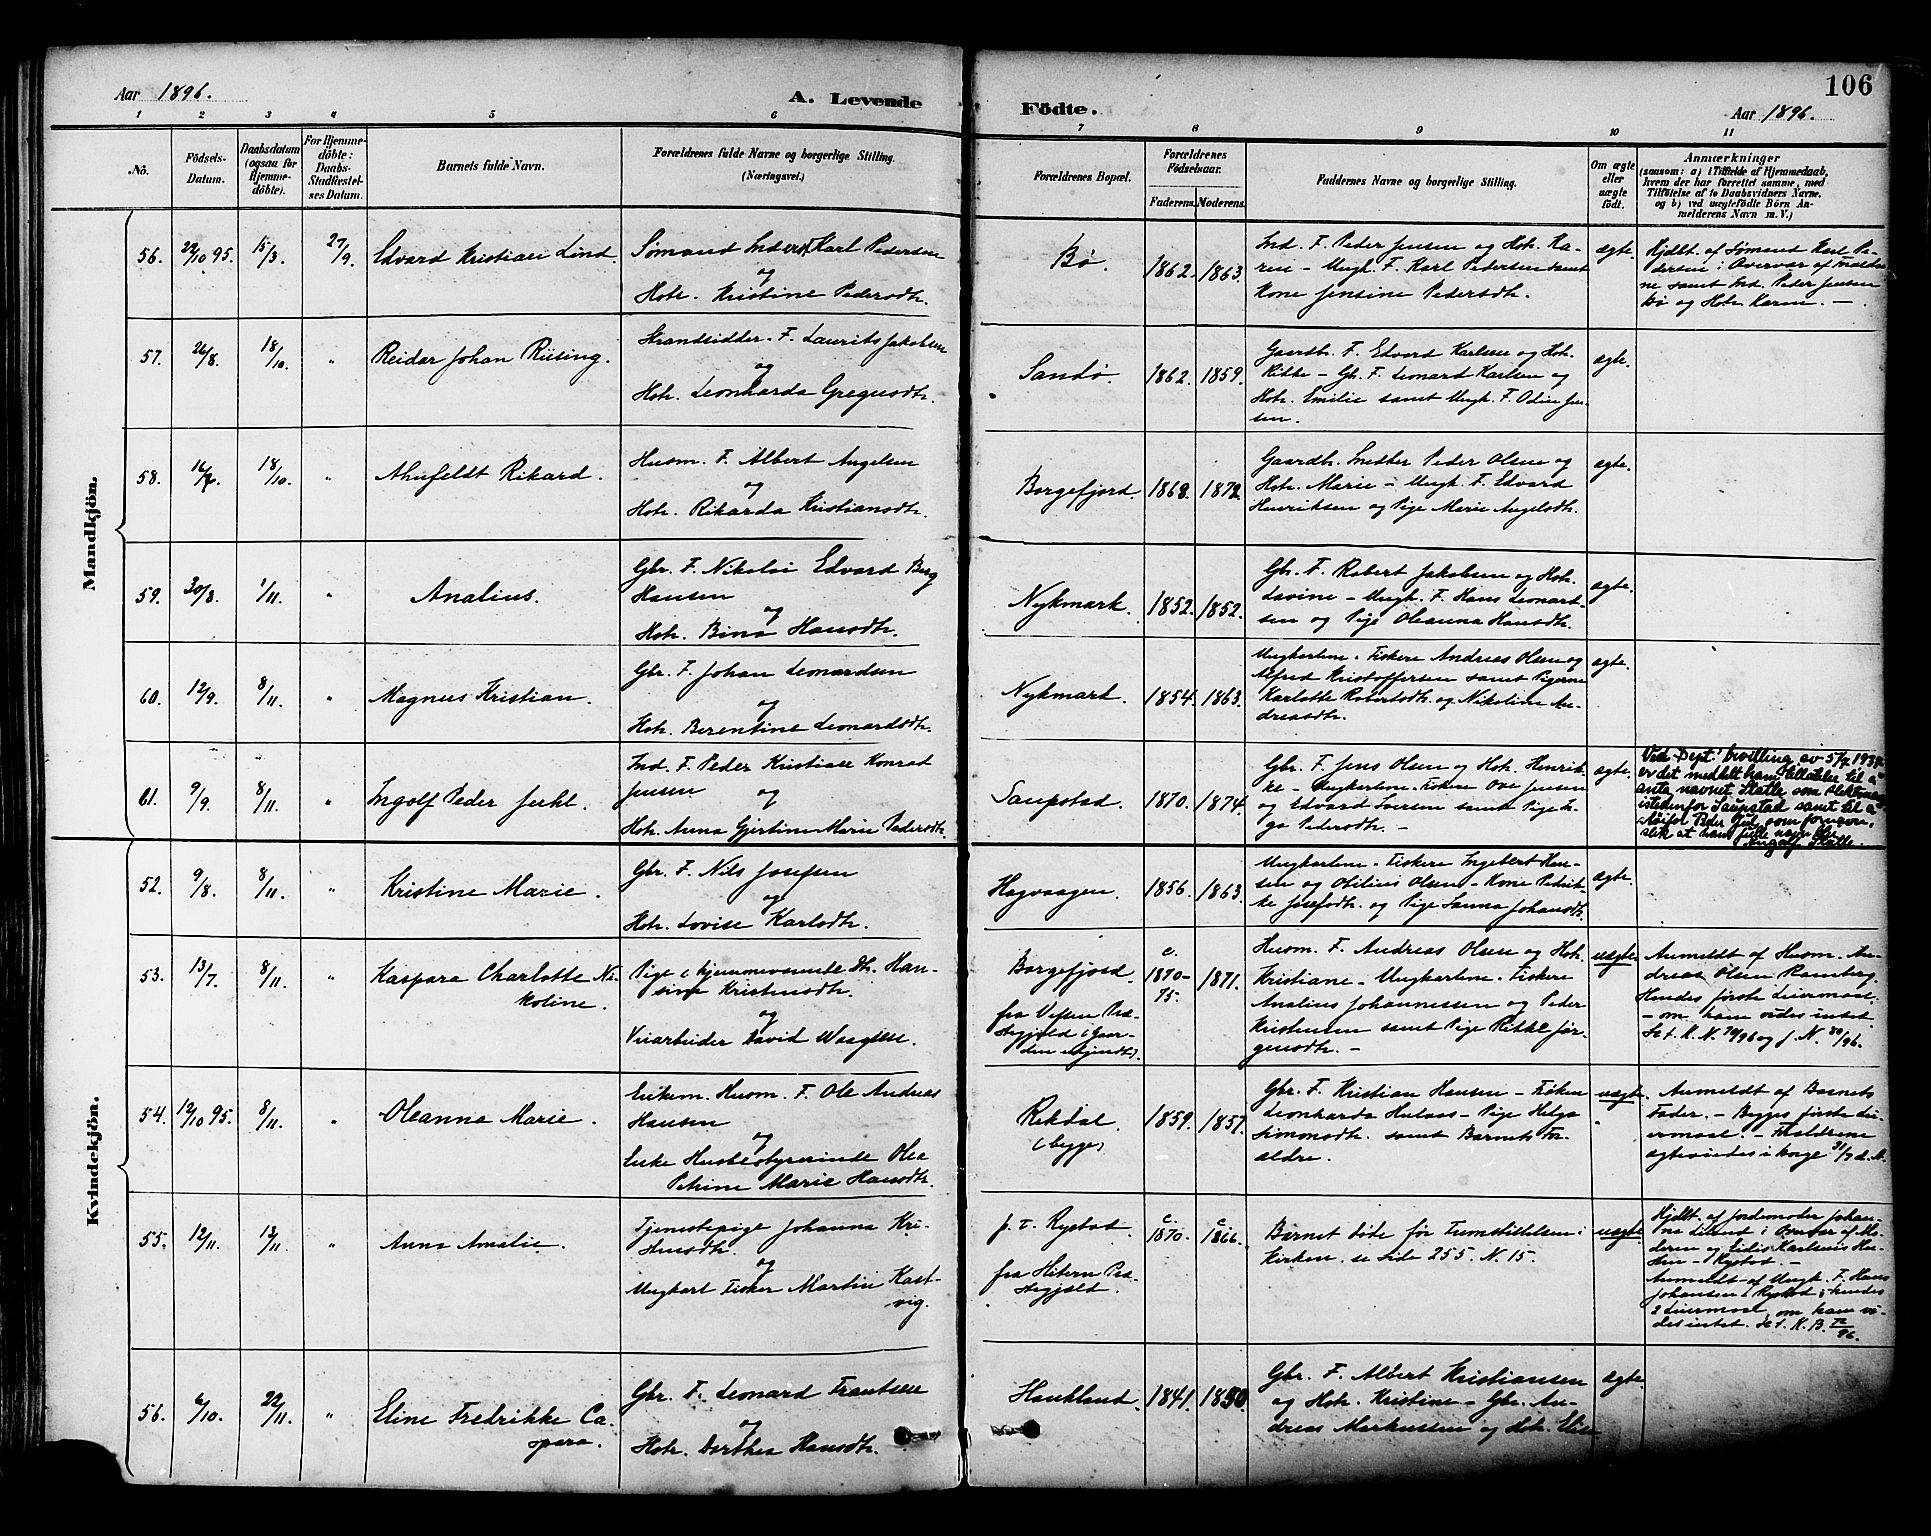 106
Aar 1896.
A. Levende
Födte.
Aar 1896.
1 2 3 4 5 6 7 8 9 10 11
No.
Födsels-
Datum.
Daabsdatum
(ogsaa for
Hjemme-
döbte).
For Hjemme-
döbte:
Daabs-
Stadfæstel-
ses Datum.
Barnets fulde Navn.
Forældrenes fulde Navne og borgerlige Stilling.
(Næringsvei.)
Forældrenes Bopæl.
Forældrenes
Födselsaar.
Faderens. Moderens.
Faddernes Navne og borgerlige Stilling.
Om ægte
eller
uægte
födt.
Anmærkninger
(saasom: a) i Tilfælde af Hjemmedaab,
hvem der har forrettet samme, med
Tilföielse af to Daabsvidners Navne.
og b) ved uægtefödte Börn An-
melderens Navn m. V.)
Mandkjön.
56. 22/10 95. 15/3 27/9 Edvard Kristian Lind.
Sømand Inderst Karl Pedersen
og
Hstr. Kristine Pedersdtr.
Bø. 1862. 1863.
Ind. F. Peder Jensen og Hstr. Ka-
ren - Ungk. F. Karl Pedersen samt
Kone Jensine Pedersdtr.
ægte.
Hjdbt. af Sømand Karl Pe-
dersen i Overvær af Forældre-
ne samt Ind. Peder Jensen
Bø og Hstr. Karen. -
57. 26/8 18/10 " Reidar Johan Riising.
Strandsidder. F. Laurits Jakobsen
og
Hstr. Leonharda Gregusdtr.
Sandø. 1862. 1859.
Gaardbr. F. Edvard Karlsen og Hstr.
Rikke - Gbr. F. Leonard Karlsen og
Hstr. Emilie samt Ungk. F. Odin Jen-
sen.
ægte.
58. 18/10 " Ahnfeldt Rikard.
Husm. F. Albert Angelsen
og
Hstr. Rikarda Kristiansdtr.
Borgefjord. 1868. 1872.
Gaardbr. Smed Peder Olsen og
Hstr. Marie - Ungk. F. Edvard
Henriksen og Pige Marie Angelsdtr.
ægte.
59. 30/8. 1/11. " Analius.
Gbr. F. Nikolai Edvard Berg
Hansen
og
Hstr. Bina Hansdtr.
Nykmark. 1852. 1852.
Gbr. F. Robert Jakobsen og Hstr.
Lavine - Ungk. F. Hans Leonart-
sen og Pige Oleanna Hansdtr.
ægte.
60. 12/9. 8/11. " Magnus Kristian.
Gbr. F. Johan Leonardsen
og
Hstr. Berentine Leonardsdtr.
Nykmark. 1854. 1863.
Ungkarlene. Fiskere Andreas Olsen og
Alfred Kristoffersen samt Pigerne
Karlotte Robertsdtr. og Nikoline An-
dreasdtr.
ægte.
61. 9/9. 8/11. " Ingolf Peder Juhl.
Ind. F. Peder Kristian Konrad
Jensen og
Hstr. Anna Gjertine Marie Pedersdtr.
Saupstad. 1870. 1874.
Gbr. F. Jens Olsen og Hstr. Henrik-
ke - Ungkarlene. Fiskere Ove Jensen
og Edvard Iversen samt Pige In-
ga Pedersdtr. -
ægte.
Ved Dept.' bevilling av 5/7 1934
er det meddelt ham tillatelse til å
anta navnet Skatle som slektsnavn
istedenfor Saupstad samt til å
sløife Peder Jul som fornavn,
slik at hans fulle navn blir
Ingolf Skatle.
Kvindekjön.
52. 9/8. 8/11. " Kristine Marie.
Gbr. F. Nils Josefsen
og
Hstr. Lovise Karlsdtr.
Hagvaagen. 1856. 1863.
Ungkarlene. Fiskere Ingebert Han-
sen og Otilius Olsen - Kone Fedrik-
ke Josefsdtr. og Pige Sanna Johansdtr.
ægte.
53. 13/7. 8/11. " Kaspara Charlotte Ni-
koline.
Pige hjemmeværende Dtr. Han-
sine Kristensdtr.
og
Veiarbeider David Waagbø.
Borgefjord
fra Vefsen Præ-
stegjeld
c.
1870-
75. 1871.
Husm. F. Andreas Olsen og Hstr.
Kristiane - Ungkarlene. Fiskere
Analius Johannessen og Peder
Kristensen samt Pige Rikke Jør-
gensdtr. -
uægte.
Anmeldt af Husm. An-
dreas Olsen Ramberg.
Hendes første Leiermaal.
- om ham vides intet.
54. 12/10 95. 8/11. " Oleanna Marie.
Enkem. Husm. F. Ole Andreas
Hansen
og
Enke Husbestyrerinde Olea
Petrine Marie Hansdtr.
Rekdal.
(begge)
1859. 1857.
Gbr. F. Kristian Hansen - Frøken
Leonharda Hulaas - Pige Helga
Simonsdtr. samt Barnets For-
ældre.
uægte.
Anmeldt af Barnets
Fader. - Begges første Lei-
ermaal. - Forældrene
ægteviedes i Borge 31/7 d. A.
55. 12/11. 13/11. " Anna Amalie.
Tjenestepige Johanna Kri-
stensdtr.
og
Ungkarl Fisker Martin Kast-
vig.
p. t. Rystad.
fra Hitern Præ-
stegjeld.
c.
1870. c.
1866.
Barnet døde før Fremstillelsen i
Kirken. se Side 255. N. 15.
uægte.
Hjdbt. af Jordemoder Johan-
na Lilend i Overvær af Mo-
deren og Eidis Karlsens Hu-
stru - Rystad. -
Anmeldt af Ungk. F. Hans
Johansen i Rystad; hendes
2 Leiermaal, om ham vi-
des intet.
56. 6/10. 22/11. " Eline Fredrikke Ca-
spara.
Gbr. F. Leonard Frantsen
og
Hstr. Dorthea Hansdtr.
Haukland. 1841. 1850.
Gbr. F. Albert Kristiansen
og Hstr. Kristine - Gbr. An-
dreas Markussen og Hstr. Elise
ægte.